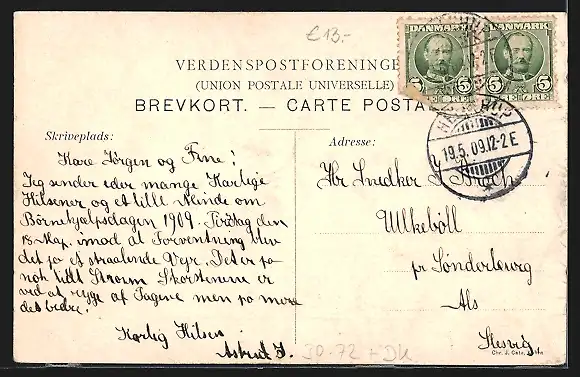 €13.-
DANMARK DANMARK
5 5 5 5
ØRE ØRE
VERDENSPOSTFORENINGE
(UNION POSTALE UNIVERSELLE)
BREVKORT. — CARTE POSTA
19.5.09.12-2E
Skriveplads:
Kære Jørgen og Fine!
Jeg sender eder mange Kærlige
Hilsener og et lille Minde om
Børnehjælpsdagen 1909. Tirsdag den
18 Maj. imod al Forventning blev
det jo et straalende Vejr. Det er jo
nok lidt Storm Skorstenene er
ved at ryge af Tagene men jo mere
des bedre!
Kærlig Hilsen
Astrid J.
Adresse:
Hr Snedker
Ulkeböll
pr Sønderborg
Als
Slesvig
30-72 + DK